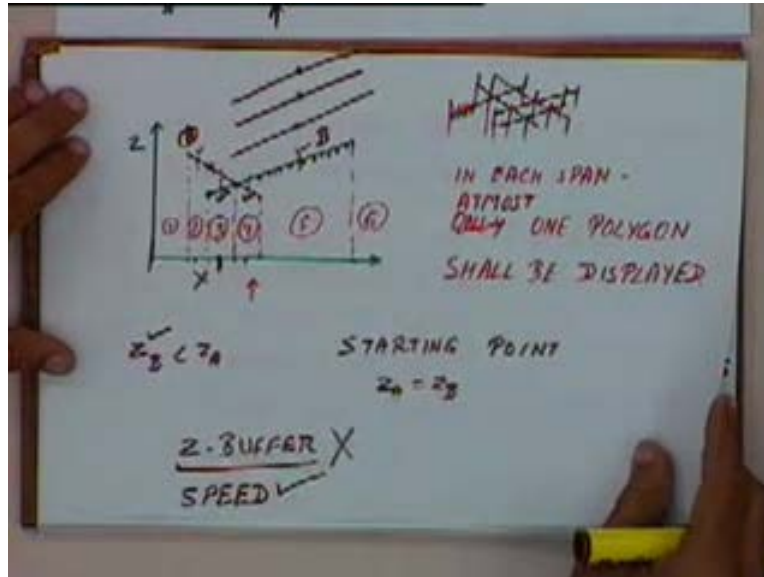 Z
B
① ② ③ ④ ⑤ ⑥
X
IN EACH SPAN -
ATMOST
ONE POLYGON
SHALL BE DISPLAYED
Z_B < Z_A
STARTING POINT
Z_A = Z_B
Z-BUFFER X
SPEED ✓